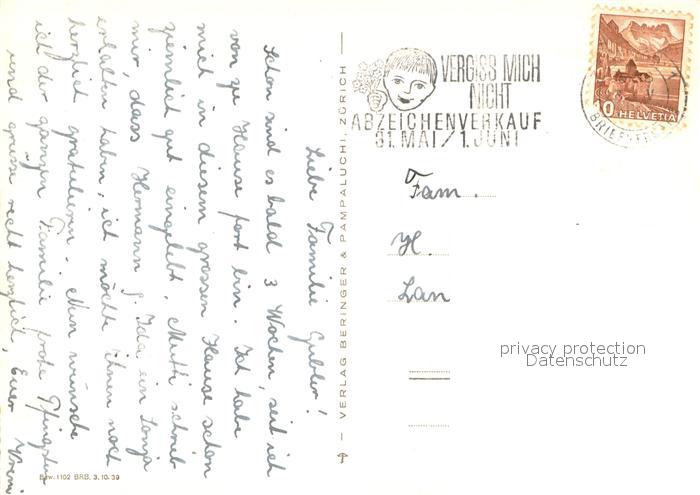 Liebe Familie Gubler!
Schon sind es bald 3 Wochen, seit ich
von zu Hause fort bin. Ich habe
mich in diesem grossen Hause schon
ziemlich gut eingelebt. Mutti schrieb
mir, dass Hermann g. Ida ein Sonja
erhalten haben, ich möchte ihnen noch
herzlich gratulieren. Nun wünsche
ich der ganzen Familie frohe Pfingsten
und grüsse recht herzlich, Euer Vreni
Bew. 1102 BRB. 3.10.39
— VERLAG BERINGER & PAMPALUCHI, ZÜRICH —
VERGISS MICH
NICHT
ABZEICHENVERKAUF
31. MAI / 1. JUNI
10 HELVETIA
Fam.
H.
Lan
privacy protection
Datenschutz